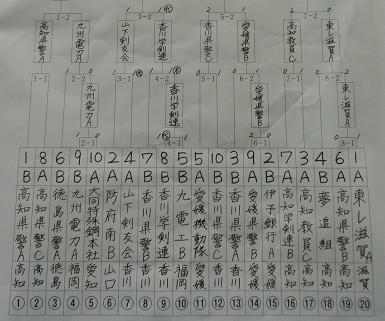 3-2
5-2
7-2
高知県警A
九州電力A
山下剣友会
香川学剣連
香川県警C
愛媛県警B
高知教員C
東レ滋賀A
1-1
3-1
5-1
7-1
8-2
九州電力A
香川学剣連
愛媛県警B
東レ滋賀A
2-1
4-1
6-1
8-1
1 B 高知県警A 高知 ①
8 A 高知県警C 高知 ②
6 徳島県警A 徳島 ③
9 B 九州電力A 福岡 ④
10 A 大同特殊鋼本社 愛知 ⑤
2 防府南B 山口 ⑥
4 A 山下剣友会 香川 ⑦
7 B 香川県警B 香川 ⑧
8 B 香川学剣連 香川 ⑨
5 B 九電工B 福岡 ⑩
5 A 愛媛機動隊 愛媛 ⑪
10 B 香川県警C 香川 ⑫
3 A 香川県警A 香川 ⑬
9 A 愛媛県警B 愛媛 ⑭
2 B 伊予銀行A 愛媛 ⑮
7 A 高知学剣連B 高知 ⑯
3 高知教員C 高知 ⑰
4 B 夢追組 ⑱
6 B 高知県警B 高知 ⑲
1 A 東レ滋賀A 滋賀 ⑳